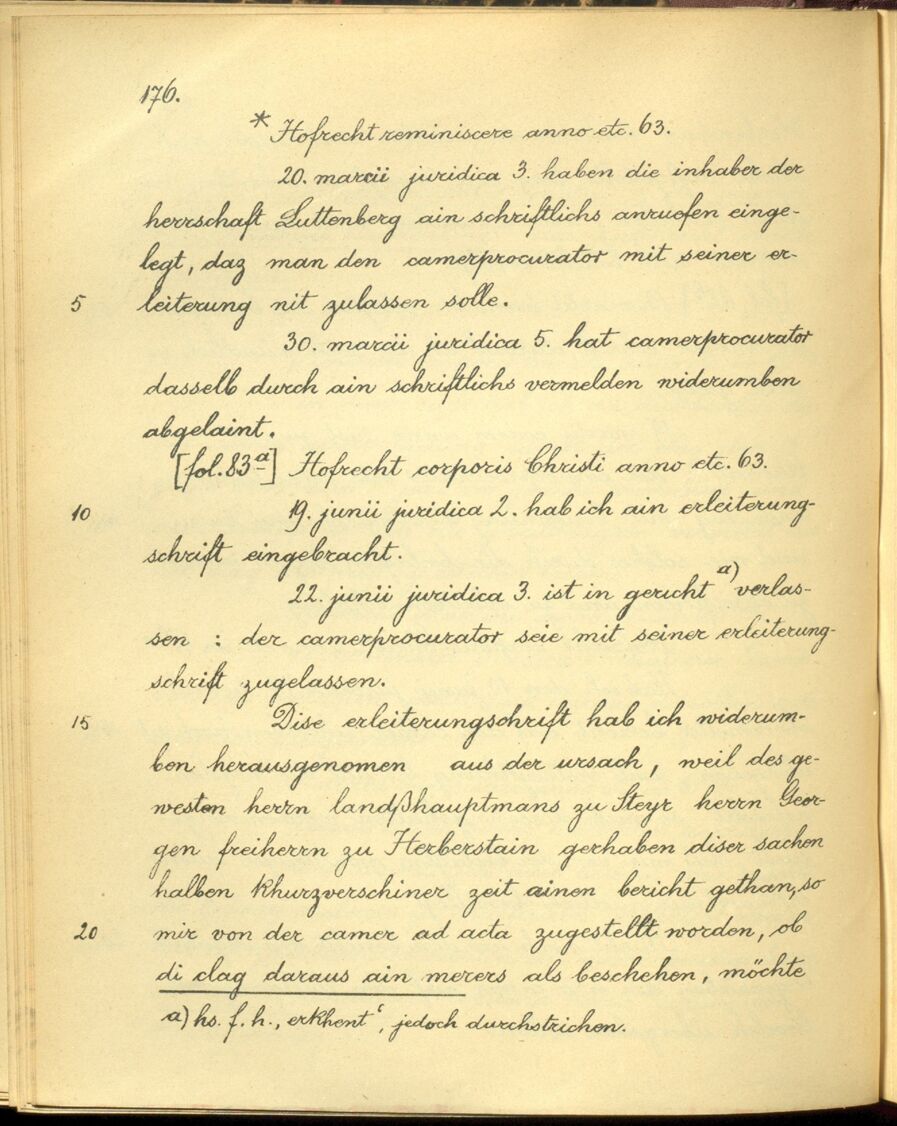 176.
* Hofrecht reminiscere anno etc. 63.
20. marcii juridica 3. haben die inhaber der
herrschaft Luttenberg ain schriftlichs anruefen einge-
legt, daz man den camerprocurator mit seiner er-
5 leiterung nit zulassen solle.
30. marcii juridica 5. hat camerprocurator
dasselb durch ain schriftlichs vermelden widerumben
abgelaint.
[fol. 83a] Hofrecht corporis Christi anno etc. 63.
10 19. junii juridica 2. hab ich ain erleiterung-
schrift eingebracht.
22. junii juridica 3. ist in gericht a) verlas-
sen : der camerprocurator seie mit seiner erleiterung-
schrift zugelassen.
15 Dise erleiterungschrift hab ich widerum-
ben herausgenomen aus der ursach, weil des ge-
westen herrn landßhauptmans zu Steyr herrn Geor-
gen freiherrn zu Herberstain gerhaben diser sachen
halben khurzverschiner zeit ainen bericht gethan, so
20 mir von der camer ad acta zugestellt worden, ob
di clag daraus ain merers als beschehen, möchte
a) hs. f. h. „erkhent“, jedoch durchstrichen.